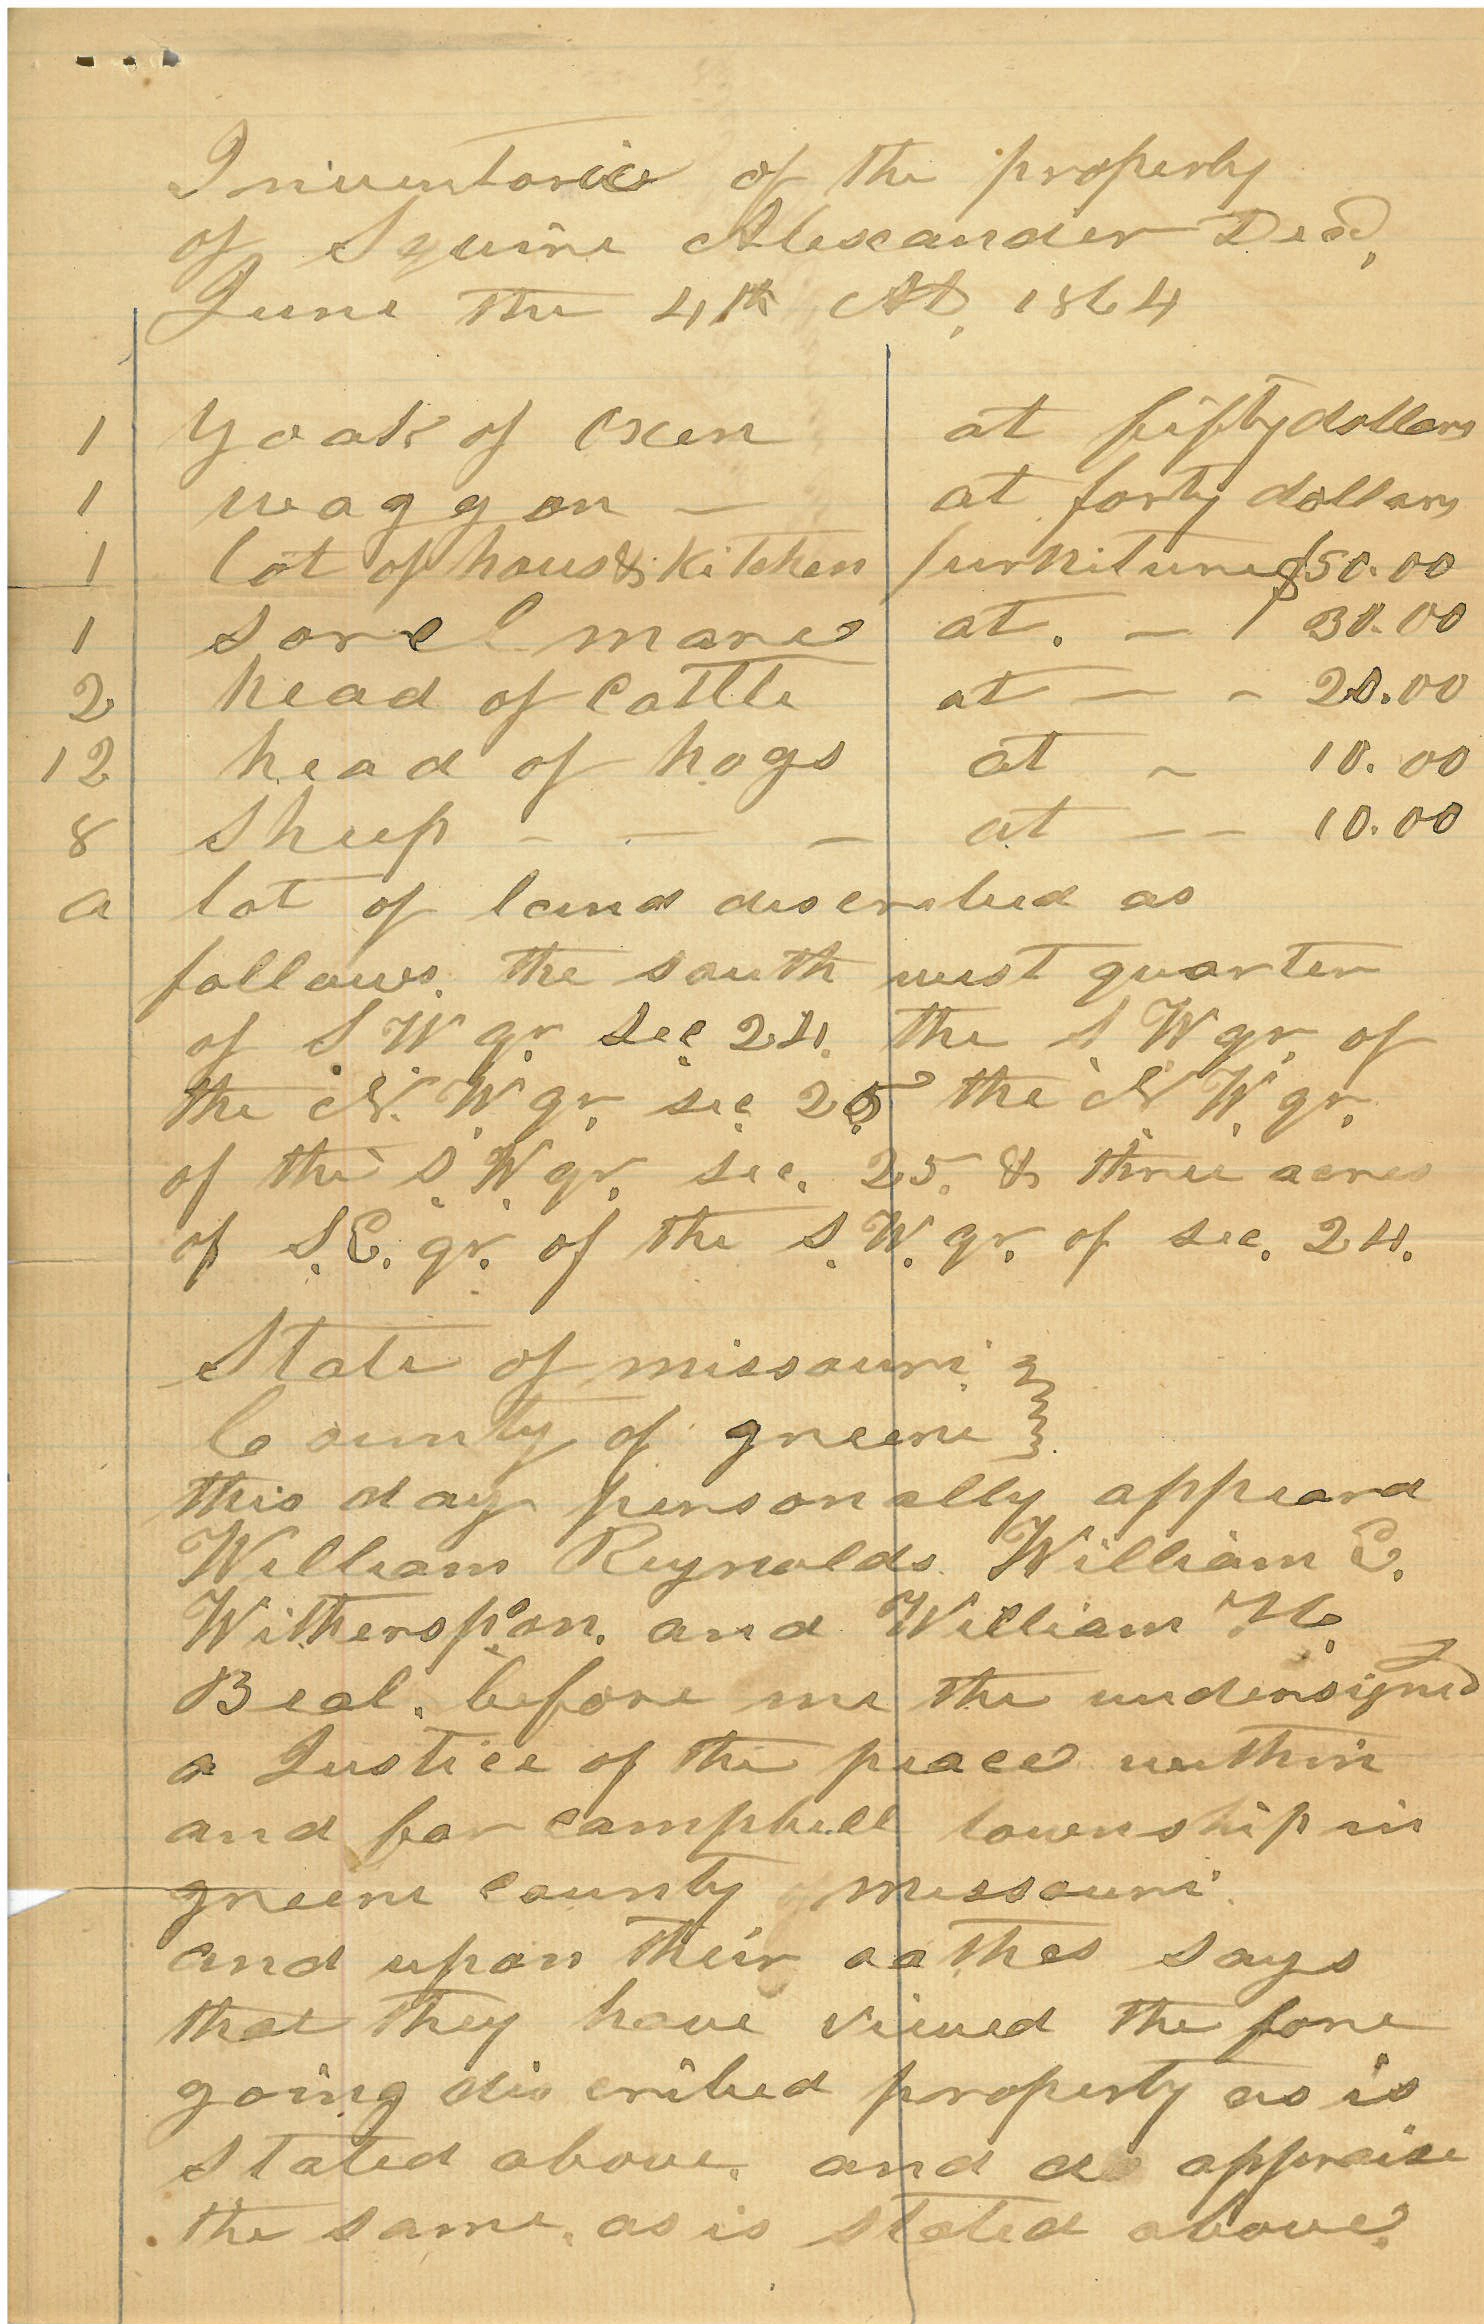 Inventorie of the property
of Squire Alexander Decd,
June the 4th AD, 1864
1 Yoak of Oxen at fifty dollars
1 waggon — at forty dollars
1 lot of hous & Kitchen furniture $50.00
1 Sorel mare at. — 30.00
2 head of Cattle at — - 20.00
12 head of hogs at ~ 10.00
8 Sheep - — — at — - 10.00
a lot of land described as
follows. the south west quarter
of S W qr. Sec 24. the S W qr. of
the N. W. qr. sec 25 the N. W. qr.
of the S. W. qr. sec. 25. & three acres
of S.E. qr. of the S.W. qr. of sec. 24.
State of missouri
County of greene
this day personally appeard
William Reynolds. William E.
Witherspon. and William H.
Beal. before me the undersigned
a Justice of the peace within
and for Campbell township in
greene County missouri.
and upon their oathes says
that they have viewed the fore
going discribed property as is
stated above. and do appraise
the same. as is stated above.